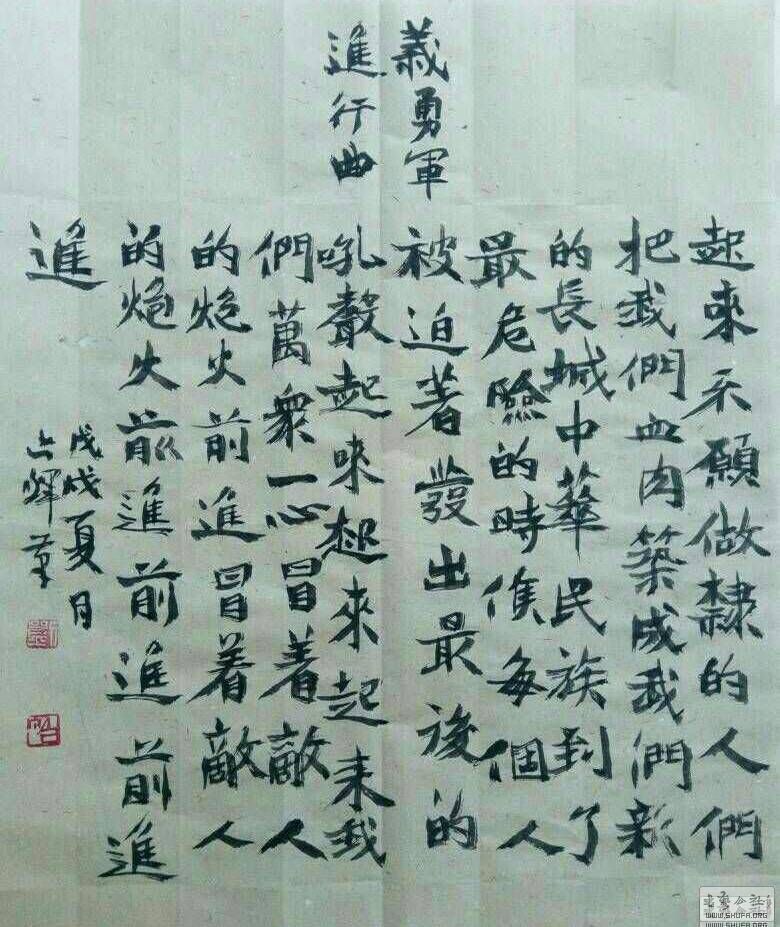 義勇軍
進行曲
起來不願做隸的人們
把我們血肉築成我們新
的長城中華民族到了
最危險的時候每個人
被迫著發出最後的
吼聲起來起來起來我
們萬衆一心冒着敵人
的炮火前進冒着敵人
的炮火前進前進前進
進
戊戌夏月
WWW.SHUFA.ORG